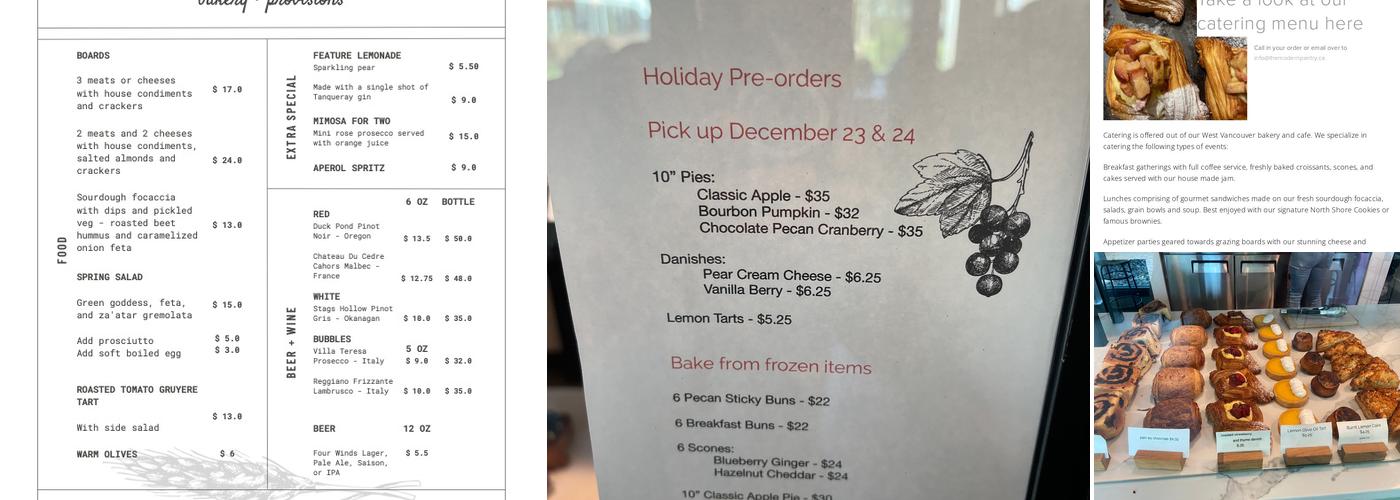 bakery + provisions
FOOD
BOARDS
3 meats or cheeses
with house condiments
and crackers
$ 17.0
2 meats and 2 cheeses
with house condiments,
salted almonds and
crackers
$ 24.0
Sourdough focaccia
with dips and pickled
veg - roasted beet
hummus and caramelized
onion feta
$ 13.0
SPRING SALAD
Green goddess, feta,
and za'atar gremolata
$ 15.0
Add prosciutto $ 5.0
Add soft boiled egg $ 3.0
ROASTED TOMATO GRUYERE
TART
$ 13.0
With side salad
WARM OLIVES $ 6
EXTRA SPECIAL
FEATURE LEMONADE
Sparkling pear $ 5.50
Made with a single shot of
Tanqueray gin $ 9.0
MIMOSA FOR TWO
Mini rose prosecco served
with orange juice
$ 15.0
APEROL SPRITZ $ 9.0
BEER + WINE
6 OZ BOTTLE
RED
Duck Pond Pinot
Noir - Oregon $ 13.5 $ 50.0
Chateau Du Cedre
Cahors Malbec -
France $ 12.75 $ 48.0
WHITE
Stags Hollow Pinot
Gris - Okanagan $ 10.0 $ 35.0
BUBBLES
5 OZ
Villa Teresa
Prosecco - Italy $ 9.0 $ 32.0
Reggiano Frizzante
Lambrusco - Italy $ 10.0 $ 35.0
BEER 12 OZ
Four Winds Lager,
Pale Ale, Saison,
or IPA
$ 5.5
Holiday Pre-orders
Pick up December 23 & 24
10" Pies:
Classic Apple - $35
Bourbon Pumpkin - $32
Chocolate Pecan Cranberry - $35
Danishes:
Pear Cream Cheese - $6.25
Vanilla Berry - $6.25
Lemon Tarts - $5.25
Bake from frozen items
6 Pecan Sticky Buns - $22
6 Breakfast Buns - $22
6 Scones:
Blueberry Ginger - $24
Hazelnut Cheddar - $24
10" Classic Apple Pie - $30
Take a look at our
catering menu here
Call in your order or email over to
info@themodernpantry.ca
Catering is offered out of our West Vancouver bakery and cafe. We specialize in
catering the following types of events:
Breakfast gatherings with full coffee service, freshly baked croissants, scones, and
cakes served with our house made jam.
Lunches comprising of gourmet sandwiches made on our fresh sourdough focaccia,
salads, grain bowls and soup. Best enjoyed with our signature North Shore Cookies or
famous brownies.
Appetizer parties geared towards grazing boards with our stunning cheese and
Lemon Olive Oil Tart
Burnt Lemon Cake